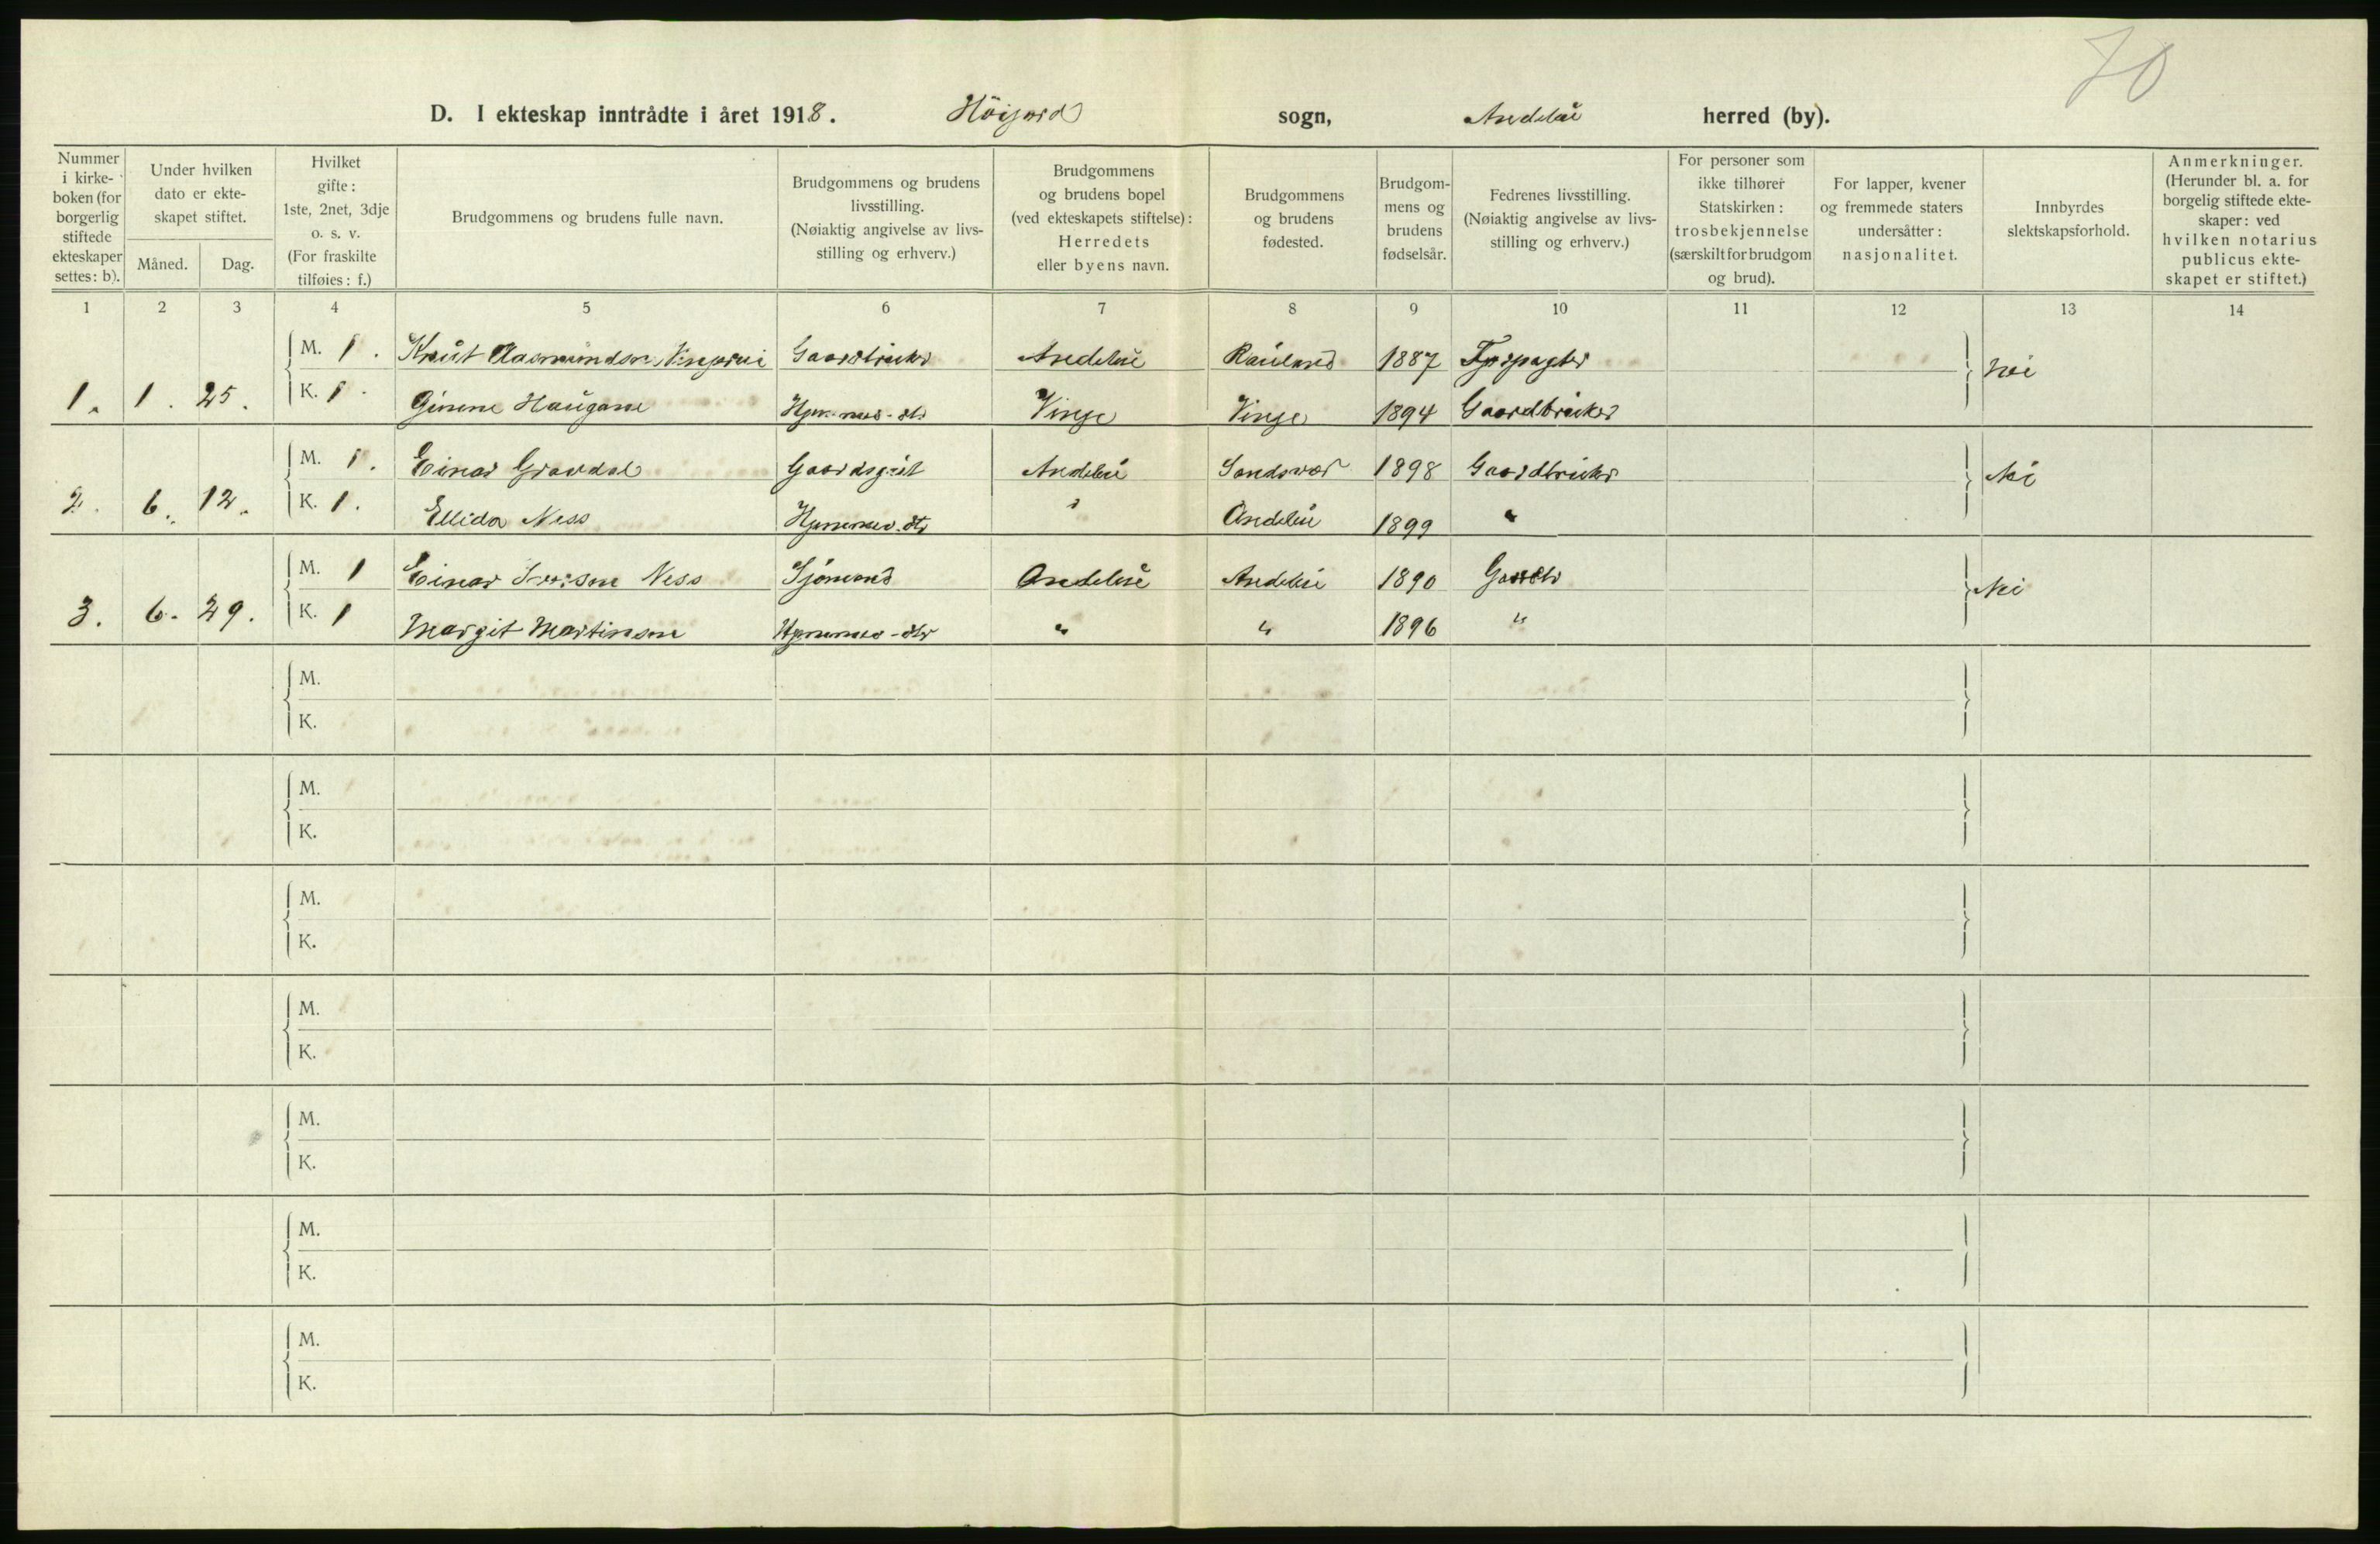 70
D. I ekteskap inntrådte i året 1918. Höijord sogn, Andebu herred (by).
Nummer i kirkeboken (for borgerlig stiftede ekteskaper settes: b).
Under hvilken dato er ekteskapet stiftet.
Måned. Dag.
Hvilket gifte: 1ste, 2net, 3dje o. s. v. (For fraskilte tilføies: f.)
Brudgommens og brudens fulle navn.
Brudgommens og brudens livsstilling. (Nøiaktig angivelse av livsstilling og erhverv.)
Brudgommens og brudens bopel (ved ekteskapets stiftelse): Herredets eller byens navn.
Brudgommens og brudens fødested.
Brudgommens og brudens fødselsår.
Fedrenes livsstilling. (Nøiaktig angivelse av livsstilling og erhverv.)
For personer som ikke tilhører Statskirken: trosbekjennelse (særskilt for brudgom og brud).
For lapper, kvener og fremmede staters undersåtter: nasjonalitet.
Innbyrdes slektskapsforhold.
Anmerkninger. (Herunder bl. a. for borgelig stiftede ekteskaper: ved hvilken notarius publicus ekteskapet er stiftet.)
1 2 3 4 5 6 7 8 9 10 11 12 13 14
M. 1. Knut Aasmundsen Gaardbruker Andebu Rauland 1887 Nei
1. 1. 25. K. 1. Ginene Haugane Vinje Vinje 1894 Gaardbruker
M. 1. Einar Gravdal Gaardsgut Andebu Sandsvær 1898 Gaardbruker Nei
2. 6. 12. K. 1. Ellida Ness Andebu 1899 "
M. 1 Einar Ness Sjömand Andebu Andebu 1890 Nei
3. 6. 29. K. 1 Margit Martinsen " " 1896 "
M.
K.
M.
K.
M.
K.
M.
K.
M.
K.
M.
K.
M.
K.